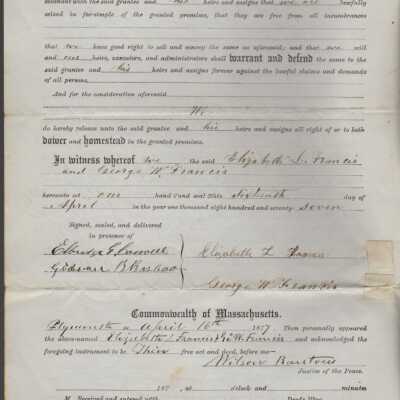 enant with the said grantee and his heirs and assigns that we are lawfully
seized in fee-simple of the granted premises, that they are free from all incumbrances
that we have good right to sell and convey the same as aforesaid; and that we will
and our heirs, executors, and administrators shall warrant and defend the same to the
said grantee and his heirs and assigns forever against the lawful claims and demands
of all persons.
And for the consideration aforesaid
We
do hereby release unto the said grantee and his heirs and assigns all right of or to both
dower and homestead in the granted premises.
In witness whereof we the said Elizabeth L. Francis
and George W. Francis
hereunto set our hand s and seal s this sixteenth day of
April in the year one thousand eight hundred and seventy seven
Signed, sealed, and delivered
in presence of
Elizabeth L Francis
George W Francis
Commonwealth of Massachusetts.
Plymouth ss April 16th 1877 Then personally appeared
the above-named Elizabeth L Francis & Geo W Francis and acknowledged the
foregoing instrument to be their free act and deed, before me—
Wilson Barstow
Justice of the Peace.
187 , at o'clock and minutes
M. Received and entered with Deeds